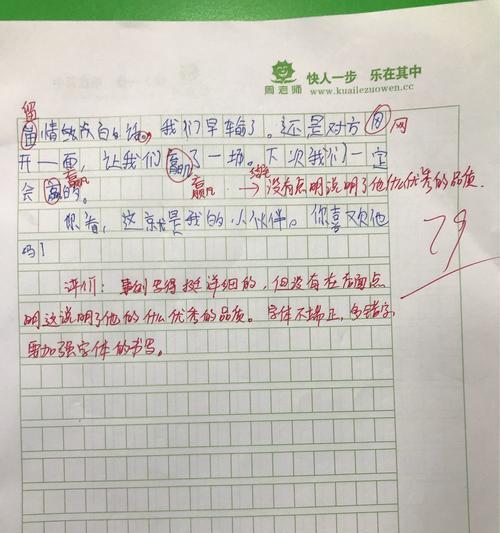 周老师
快人一步 乐在其中
www.kuailezuowen.cn
留
情的成自白饭,我们早输了。还是对方网
网
开一面,让我们赢了一场。下次我们一定
会赢的。
赢
结尾
→没有点明说明了他什么优秀的品质.
你看,这就是我的小伙伴。你喜欢他
吗!
79
评价:事例写得挺详细的,但没有在后面点
明这说明了他的什么优秀的品质。字体不端正,多错字
要加强字体的书写。